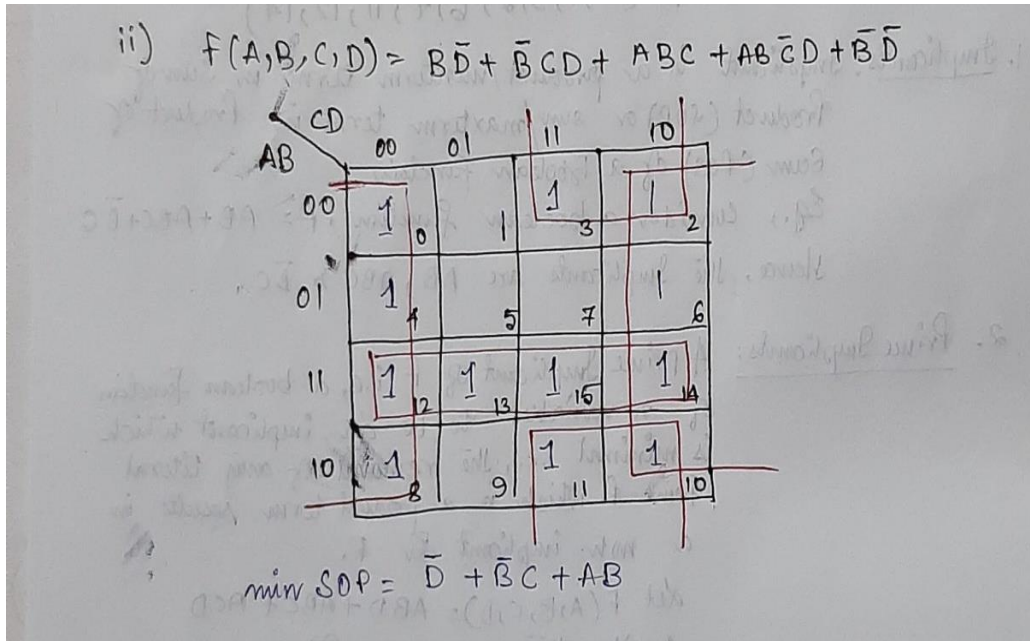 ii) F(A,B,C,D) = BD̅ + B̅CD + ABC + ABC̅D + B̅D̅
CD
AB
00 01 11 10
00 1 0 1 1 3 1 2
01 1 4 5 7 1 6
11 1 12 1 13 1 15 1 14
10 1 8 9 1 11 1 10
min SOP = D̅ + B̅C + AB